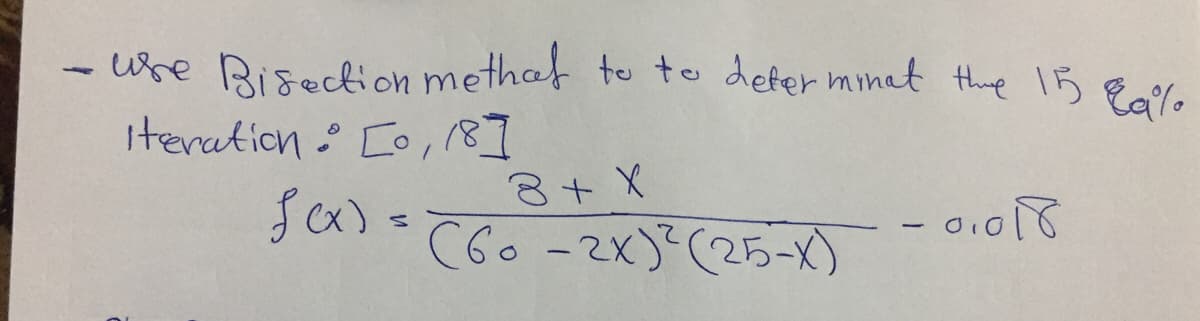 - use Bisection methat to to determinat the 15 Ea%
Iteration : [0, 18]
8 + X
f(x) = (60 - 2X)²(25-X) - 0.018